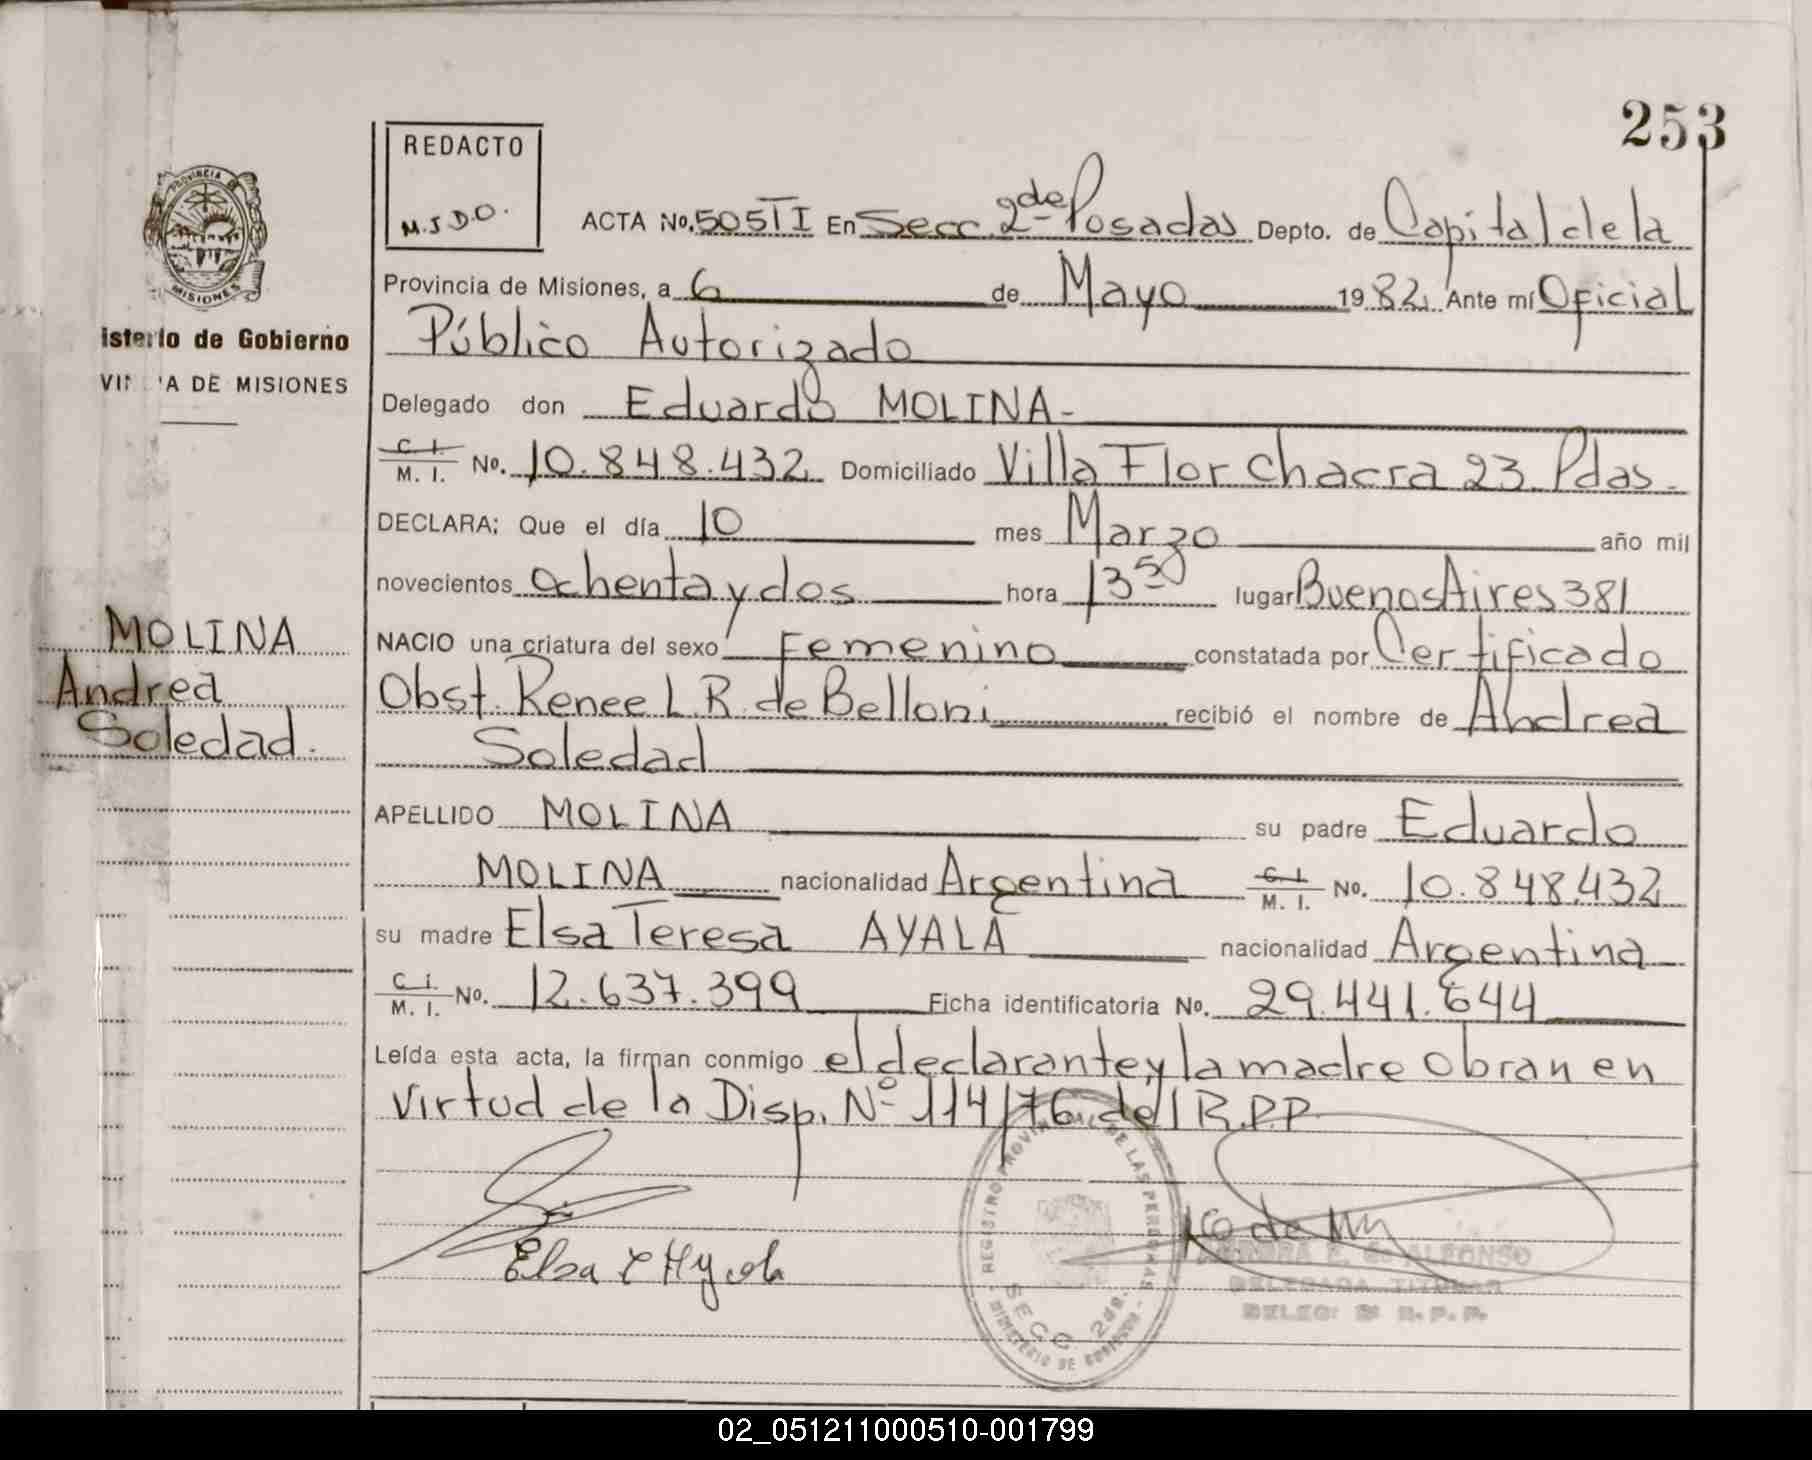 253
REDACTO
M.J.D.O.
PROVINCIA DE
MISIONES
isterio de Gobierno
VINCIA DE MISIONES
ACTA No. 505 TI En Secc. 2da de Posadas Depto. de Capital de la
Provincia de Misiones, a 6 de Mayo 1982 Ante mí Oficial
Público Autorizado
Delegado don Eduardo MOLINA-
C. I. M. I. No. 10.848.432 Domiciliado Villa Flor Chacra 23 Pdas.
DECLARA: Que el día 10 mes Marzo año mil
novecientos ochenta y dos hora 13 50 lugar Buenos Aires 381
MOLINA
Andrea
Soledad.
NACIO una criatura del sexo Femenino constatada por Certificado
Obst. Renee L.R. de Belloni recibió el nombre de Andrea
Soledad
APELLIDO MOLINA su padre Eduardo
MOLINA nacionalidad Argentina C. I. M. I. No. 10.848.432
su madre Elsa Teresa AYALA nacionalidad Argentina
C. I. M. I. No. 12.637.399 Ficha identificatoria No. 29.441.644
Leída esta acta, la firman conmigo el declarante y la madre obran en
virtud de la Disp. Nº 114/76 del R.P.P.
REGISTRO PROVINCIAL DE LAS PERSONAS
SECC. 2da.
MINISTERIO DE GOBIERNO
Elsa
E. G. ALFONSO
DELEGADA TITULAR
DELEG. R.P.P.
02_051211000510-001799